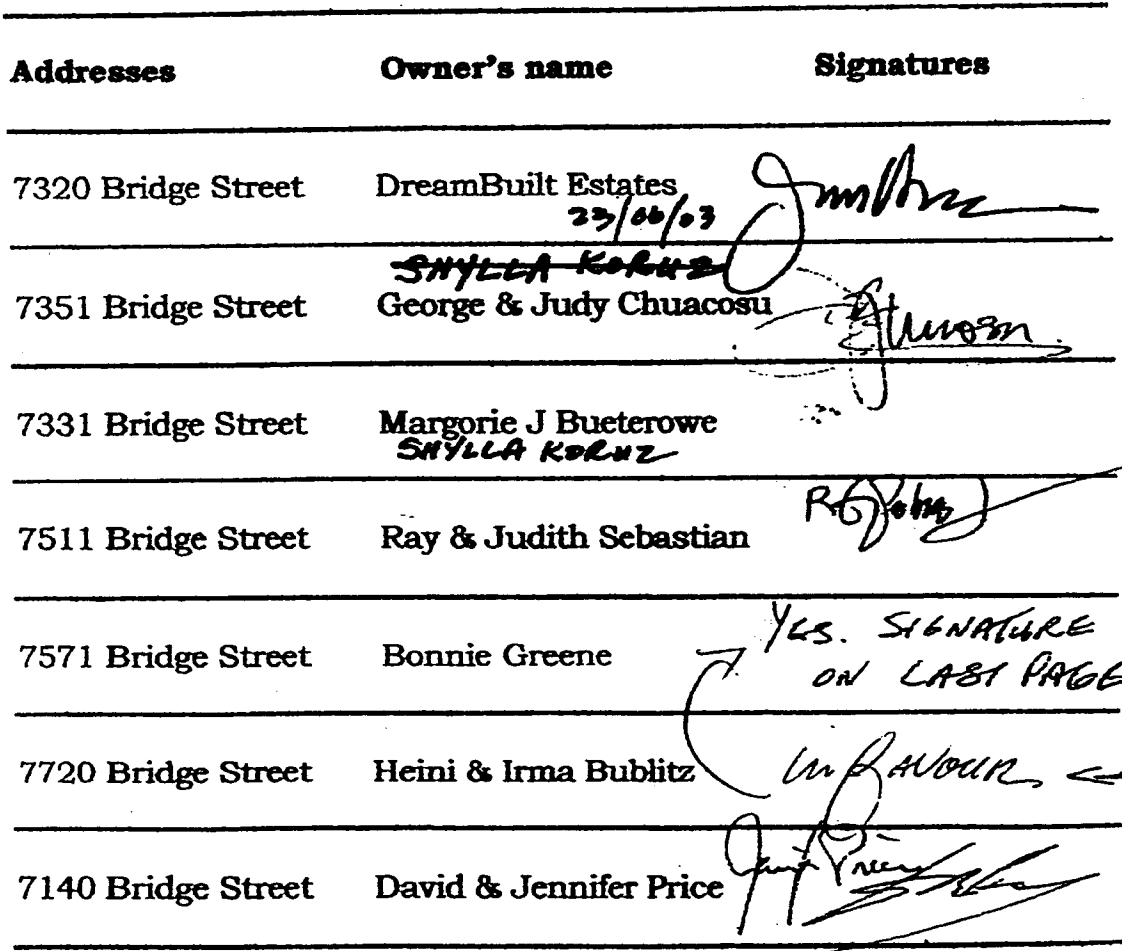 Addresses Owner's name Signatures
7320 Bridge Street DreamBuilt Estates
23/06/03
SHYLLA KORUZ
7351 Bridge Street George & Judy Chuacosu
7331 Bridge Street Margorie J Bueterowe
SHYLLA KORUZ
7511 Bridge Street Ray & Judith Sebastian
7571 Bridge Street Bonnie Greene YES. SIGNATURE
ON LAST PAGE
7720 Bridge Street Heini & Irma Bublitz in FAVOUR
7140 Bridge Street David & Jennifer Price